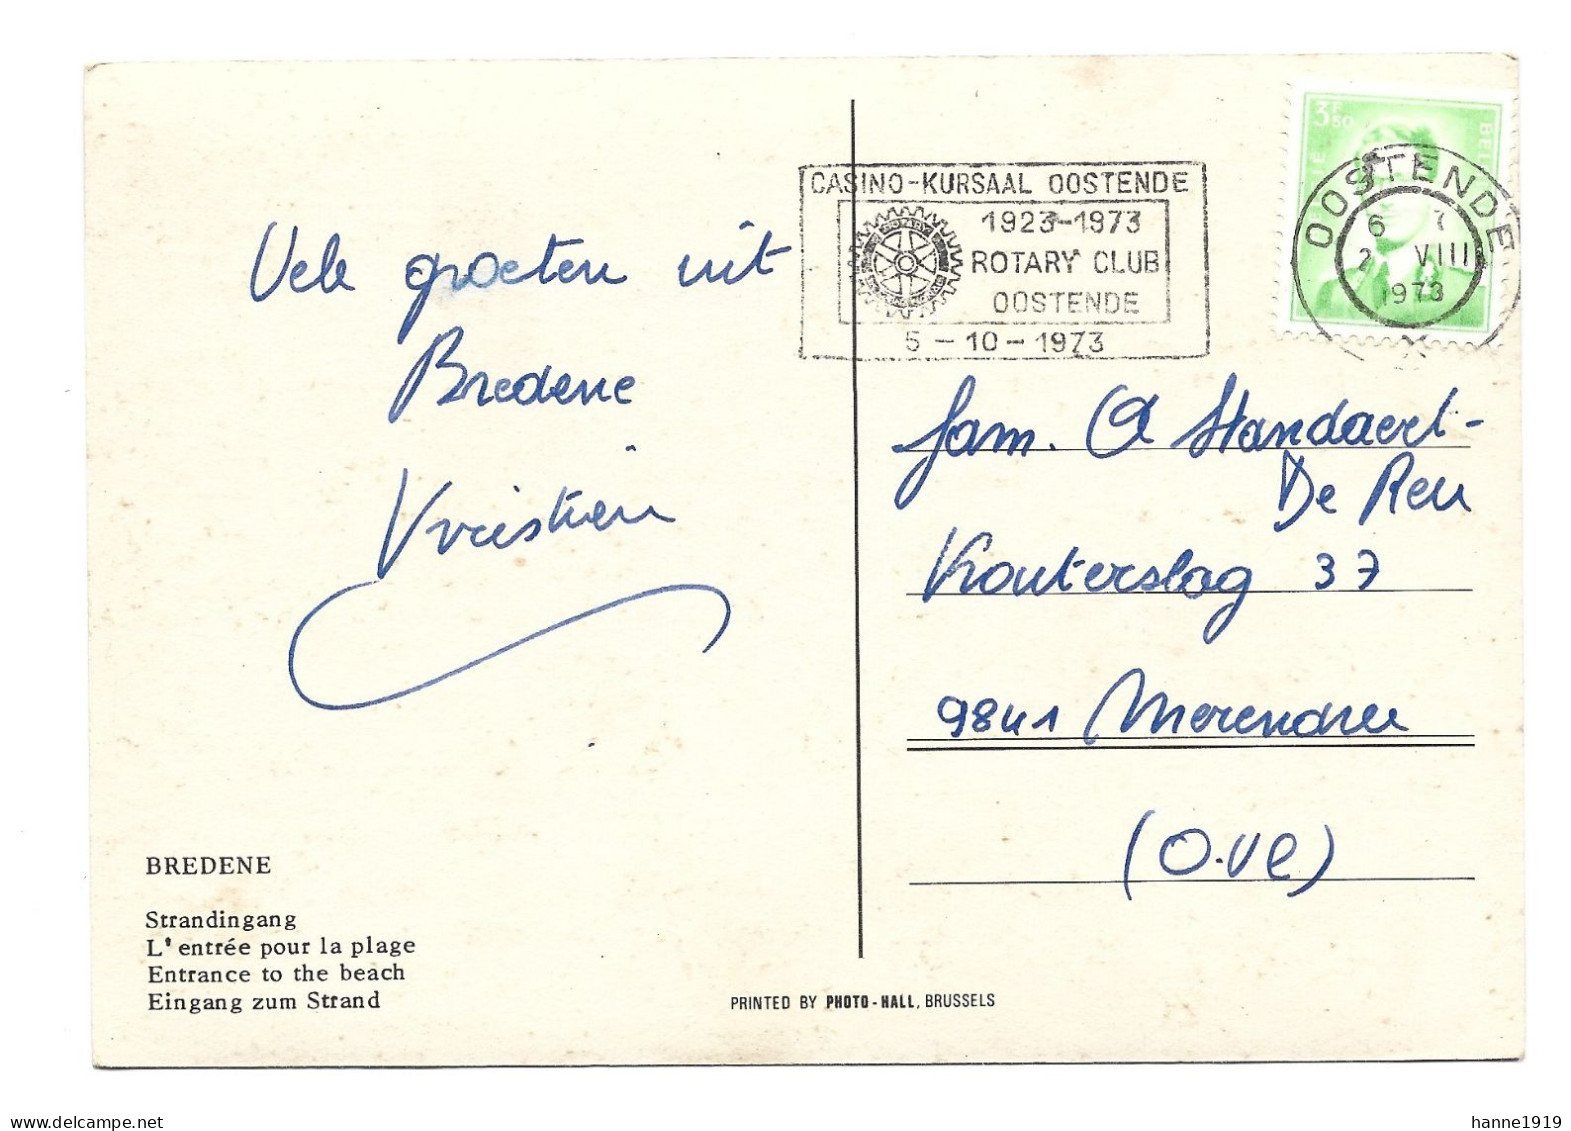 Vele groeten uit
Bredene
Kristien
BREDENE
Strandingang
L'entrée pour la plage
Entrance to the beach
Eingang zum Strand
PRINTED BY PHOTO-HALL, BRUSSELS
CASINO-KURSAAL OOSTENDE
1923-1973
ROTARY CLUB
OOSTENDE
5-10-1973
3F50
OOSTENDE
VIII
1973
fam. A Standaert-
De Reu
Kouterslag 37
9841 Merendree
(O.Vl)
delcampe.net
hanne1919